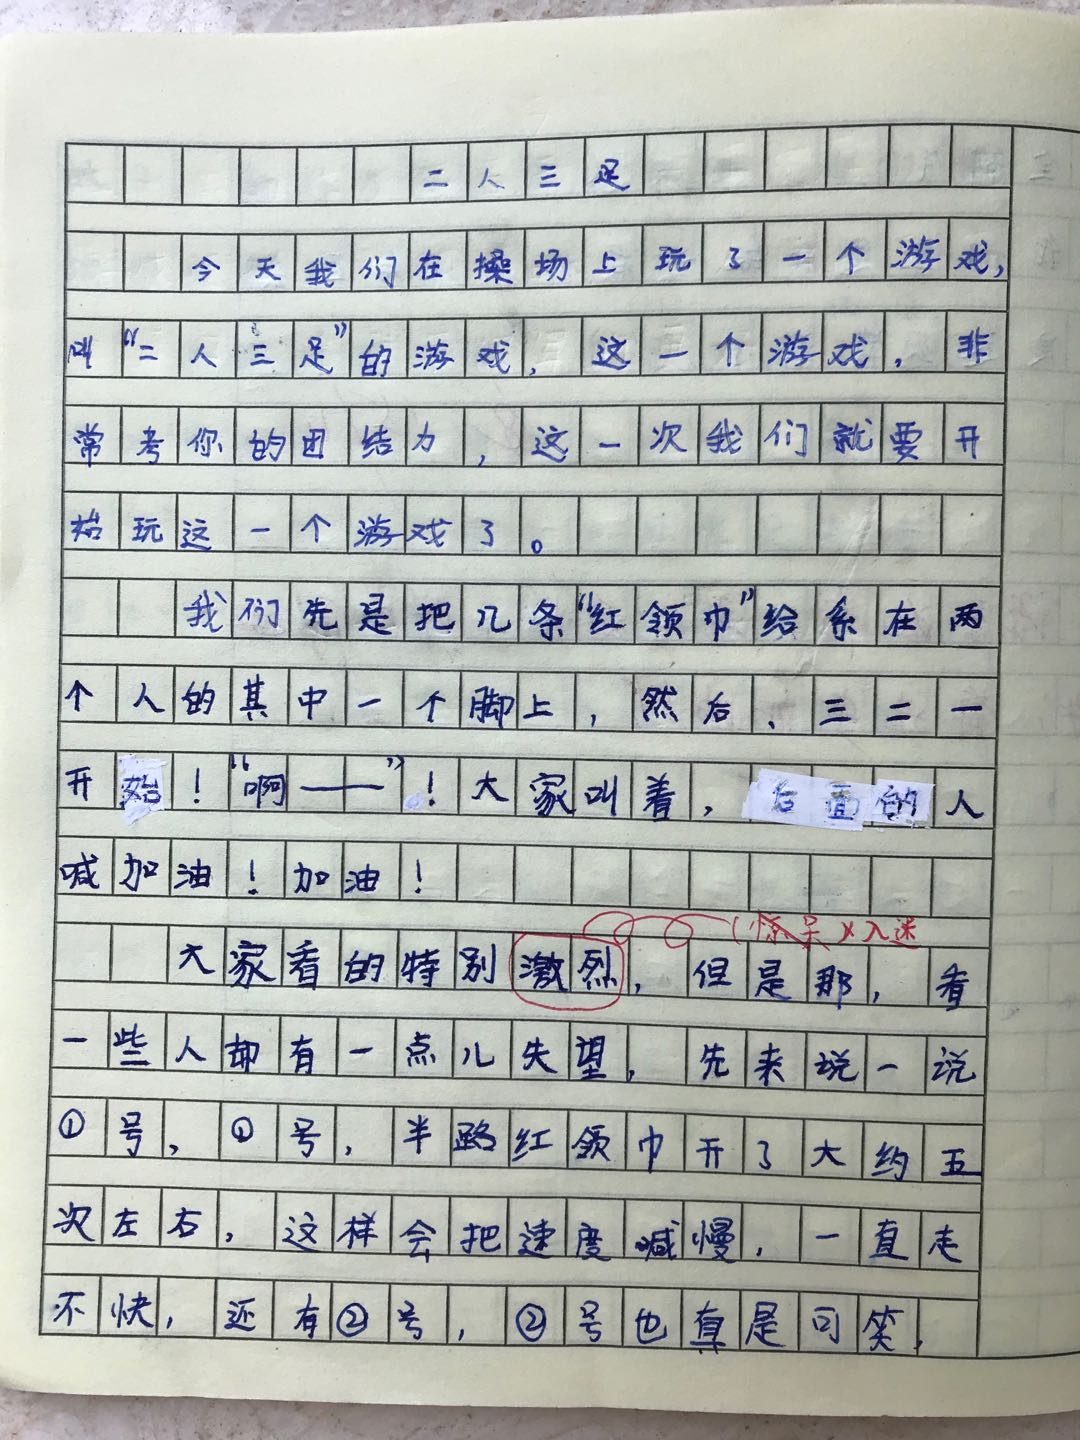 二人三足
今天我们在操场上玩了一个游戏,
叫“二人三足”的游戏,这一个游戏,非
常考你的团结力,这一次我们就要开
始玩这一个游戏了。
我们先是把几条“红领巾”给系在两
个人的其中一个脚上,然后、三二一
开始!“啊——”!大家叫着,后面的人
喊加油!加油!
(惊呆)入迷
大家看的特别激烈,但是那,看
一些人却有一点儿失望,先来说一说
①号,①号,半路红领巾开了大约五
次左右,这样会把速度喊慢,一直走
不快,还有②号,②号也真是可笑,